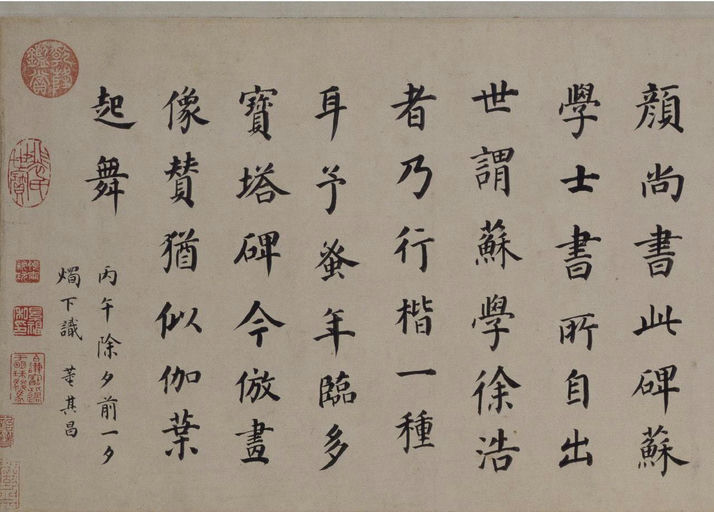 顔尚書此碑蘇
學士書所自出
世謂蘇學徐浩
者乃行楷一種
耳予蚤年臨多
寶塔碑今倣畫
像贊猶似伽葉
起舞
丙午除夕前一夕
燭下識 董其昌